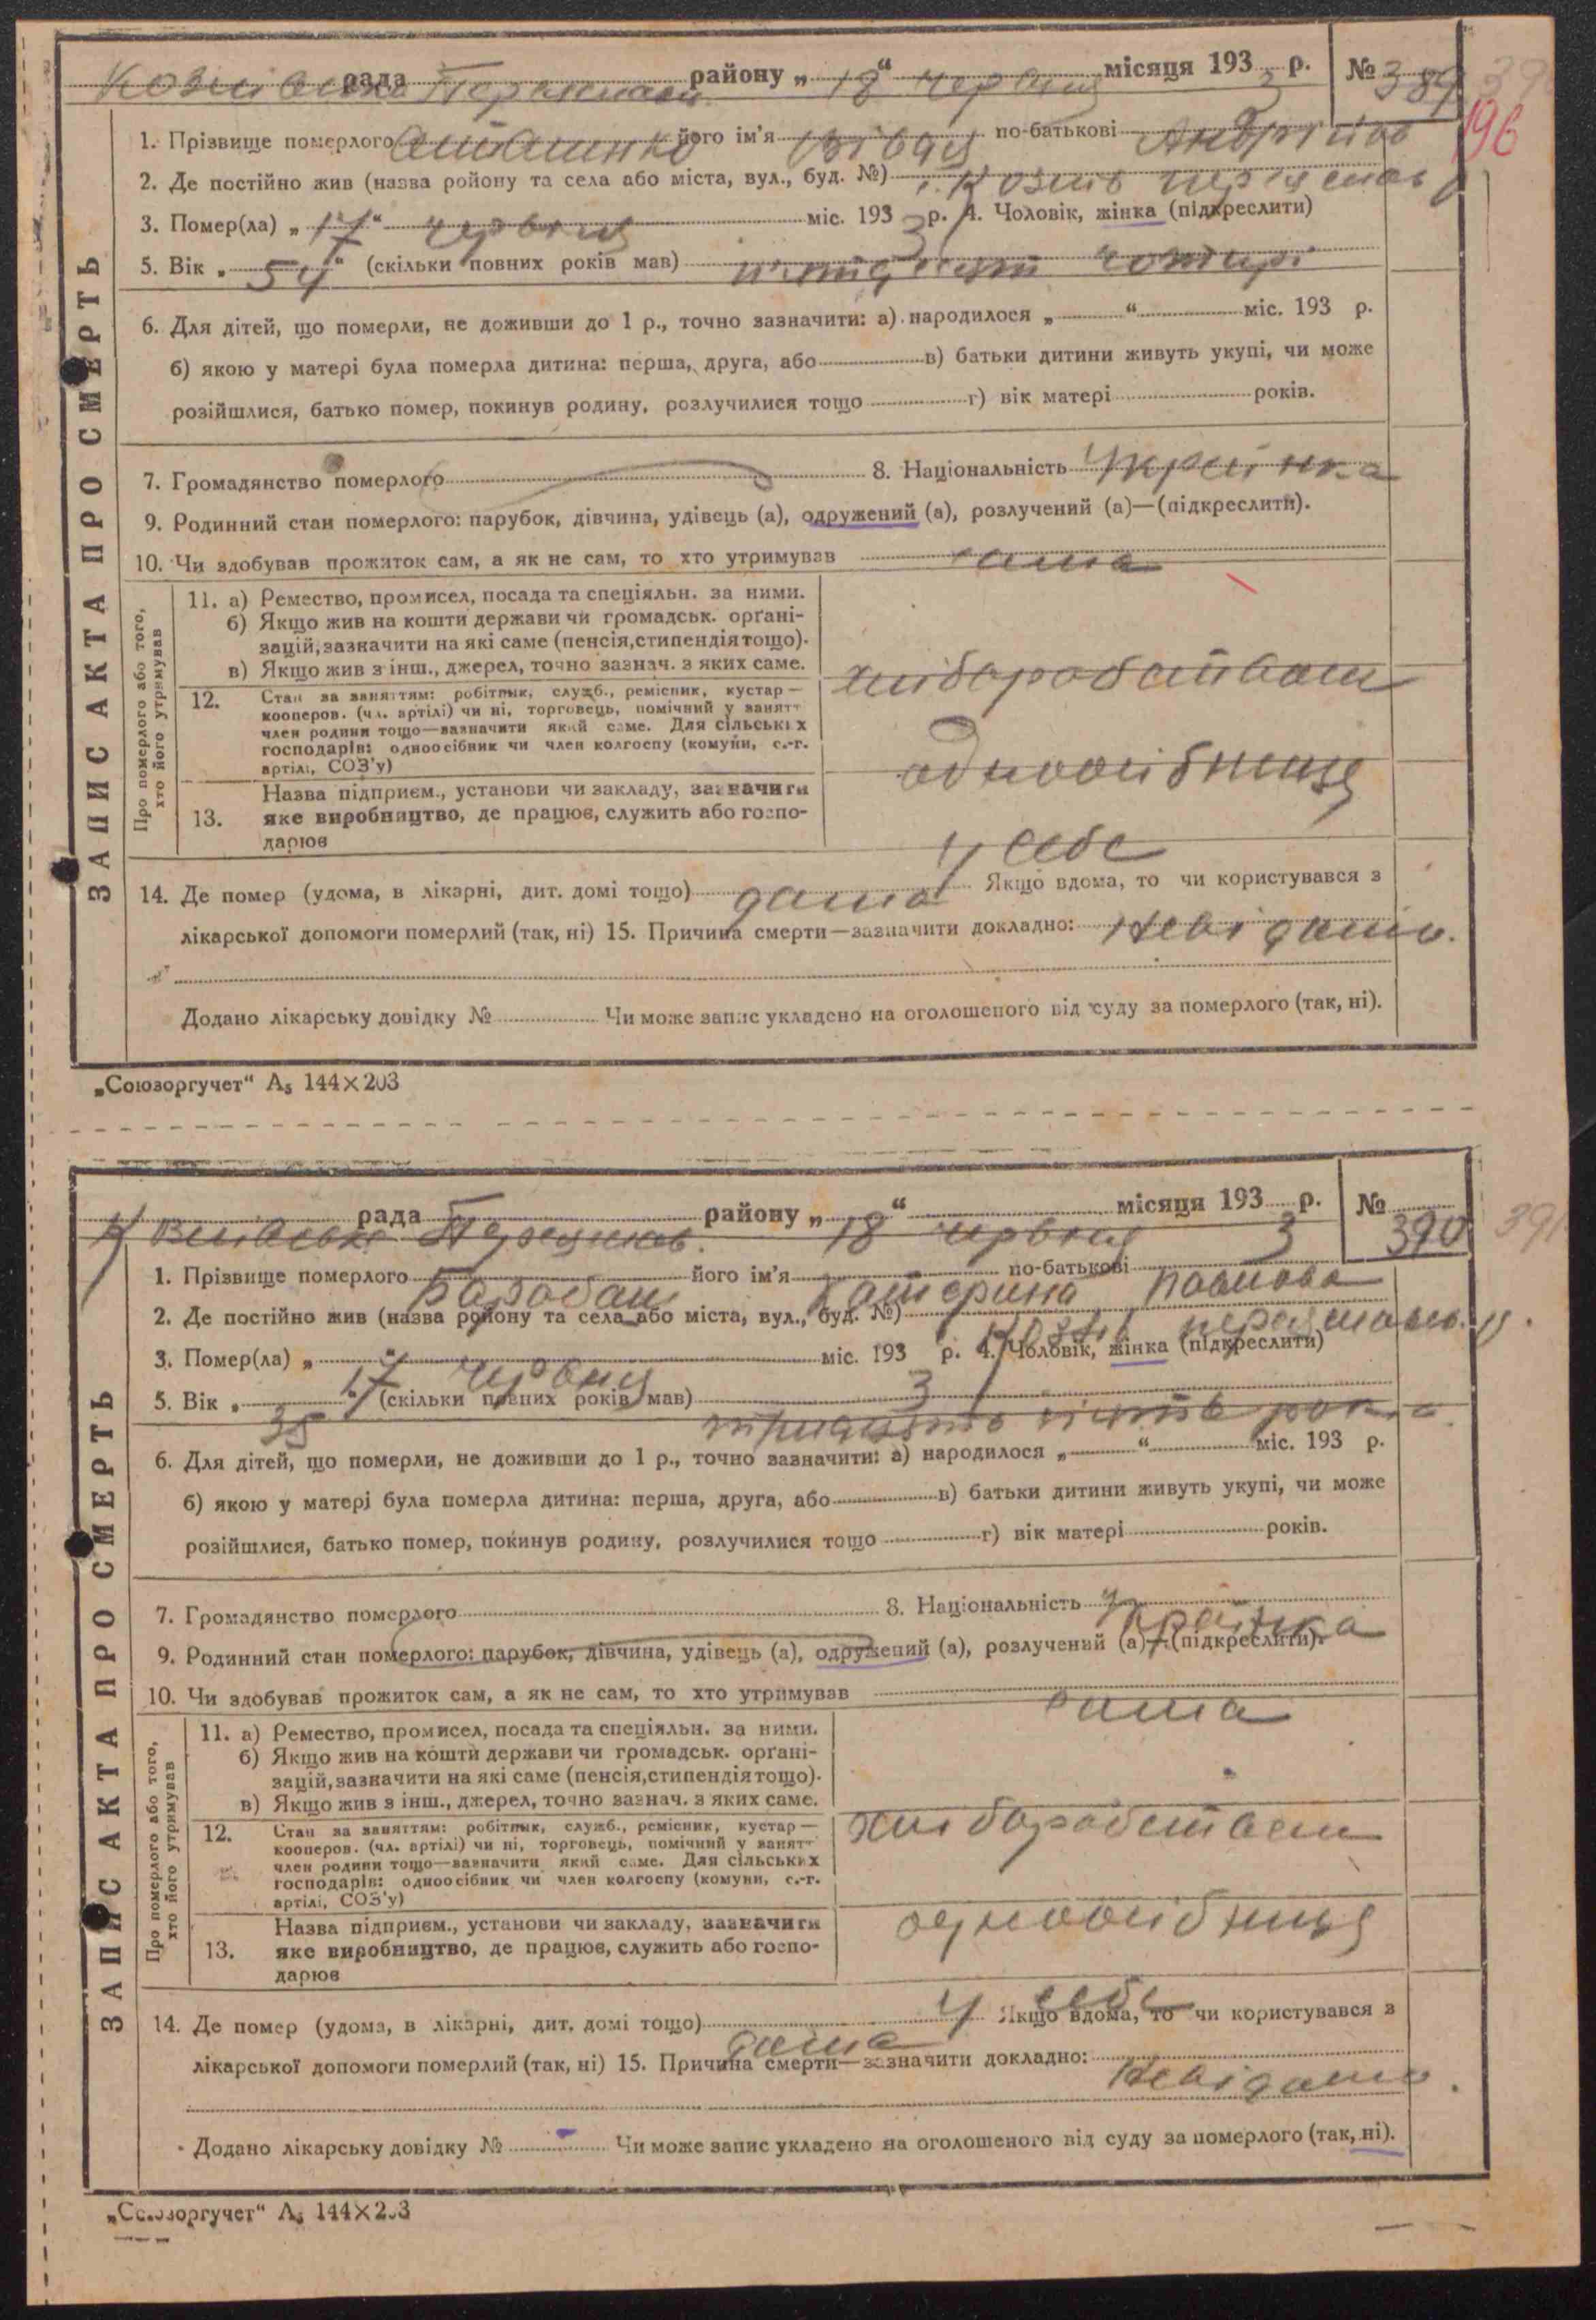 рада Переяслав району „ 18 “ червня місяця 193 3 р. № 389
196
1. Прізвище померлого його ім’я по-батькові
2. Де постійно жив (назва ройону та села або міста, вул., буд. №)
3. Помер(ла) „ 17 “ червня міс. 193 3 р. 4. Чоловік, жінка (підкреслити)
5. Вік „ 54 “ (скільки повних років мав) чотирі
6. Для дітей, що померли, не доживши до 1 р., точно зазначити: а) народилося „ “ міс. 193 р.
б) якою у матері була померла дитина: перша, друга, або в) батьки дитини живуть укупі, чи може
розійшлися, батько помер, покинув родину, розлучилися тощо г) вік матері років.
7. Громадянство померлого 8. Національність Українка
9. Родинний стан померлого: парубок, дівчина, удівець (а), одружений (а), розлучений (а)—(підкреслити).
10. Чи здобував прожиток сам, а як не сам, то хто утримував сама
Про померлого або того,
хто його утримував
11. а) Ремество, промисел, посада та спеціяльн. за ними.
б) Якщо жив на кошти держави чи громадськ. орґані-
зацій, зазначити на які саме (пенсія, стипендія тощо).
в) Якщо жив з інш., джерел, точно зазнач. з яких саме.
12. Стан за заняттям: робітник, служб., ремісник, кустар—
кооперов. (чл. артілі) чи ні, торговець, помічний у занятт
член родини тощо—зазначити який саме. Для сільських
господарів: одноосібник чи член колгоспу (комуни, с.-г.
артілі, СОЗ’у)
одноосібниця
13. Назва підприєм., установи чи закладу, зазначити
яке виробництво, де працює, служить або госпо-
дарює
у себе
14. Де помер (удома, в лікарні, дит. домі тощо) дома Якщо вдома, то чи користувався з
лікарської допомоги померлий (так, ні) 15. Причина смерти—зазначити докладно: Невідомо.
Додано лікарську довідку № Чи може запис укладено на оголошеного від суду за померлого (так, ні).
ЗАПИС АКТА ПРО СМЕРТЬ
„Союзоргучет“ А₅ 144×203
рада Переяслав. району „ 18 “ червня місяця 193 3 р. № 390
391
1. Прізвище померлого Барабаш його ім’я Катерина по-батькові
2. Де постійно жив (назва ройону та села або міста, вул., буд. №)
3. Помер(ла) „ 17 “ червня міс. 193 3 р. 4. Чоловік, жінка (підкреслити)
5. Вік „ 35 “ (скільки повних років мав)
6. Для дітей, що померли, не доживши до 1 р., точно зазначити: а) народилося „ “ міс. 193 р.
б) якою у матері була померла дитина: перша, друга, або в) батьки дитини живуть укупі, чи може
розійшлися, батько помер, покинув родину, розлучилися тощо г) вік матері років.
7. Громадянство померлого 8. Національність Українка
9. Родинний стан померлого: парубок, дівчина, удівець (а), одружений (а), розлучений (а)—(підкреслити).
10. Чи здобував прожиток сам, а як не сам, то хто утримував сама
Про померлого або того,
хто його утримував
11. а) Ремество, промисел, посада та спеціяльн. за ними.
б) Якщо жив на кошти держави чи громадськ. орґані-
зацій, зазначити на які саме (пенсія, стипендія тощо).
в) Якщо жив з інш., джерел, точно зазнач. з яких саме.
12. Стан за заняттям: робітник, служб., ремісник, кустар—
кооперов. (чл. артілі) чи ні, торговець, помічний у занятт
член родини тощо—зазначити який саме. Для сільських
господарів: одноосібник чи член колгоспу (комуни, с.-г.
артілі, СОЗ’у)
одноосібниця
13. Назва підприєм., установи чи закладу, зазначити
яке виробництво, де працює, служить або госпо-
дарює
у себе
14. Де помер (удома, в лікарні, дит. домі тощо) дома Якщо вдома, то чи користувався з
лікарської допомоги померлий (так, ні) 15. Причина смерти—зазначити докладно: Невідомо.
Додано лікарську довідку № Чи може запис укладено на оголошеного від суду за померлого (так, ні).
ЗАПИС АКТА ПРО СМЕРТЬ
„Союзоргучет“ А₅ 144×203